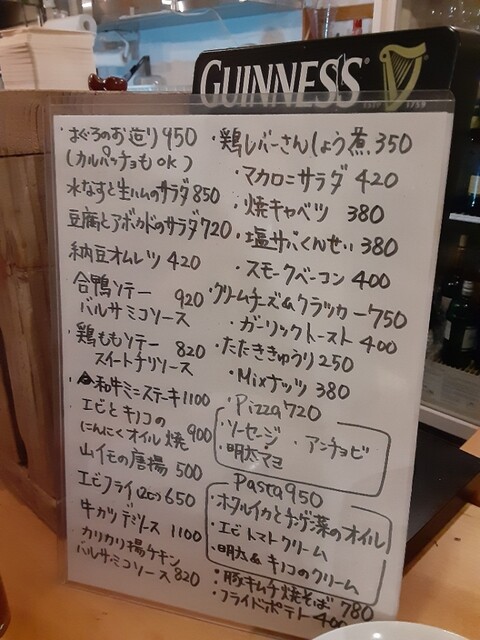 GUINNESS
・まぐろのお造り 950
(カルパッチョもOK)
水なすと生ハムのサラダ 850
豆腐とアボカドのサラダ 720
納豆オムレツ 420
合鴨ソテー 920
バルサミコソース
・鶏ももソテー 820
スイートチリソース
・和牛ミニステーキ 1100
エビとキノコの
にんにくオイル焼 900
山イモの唐揚 500
エビフライ(2コ) 650
牛カツデミソース 1100
カリカリ揚チキン
バルサミコソース 820
・鶏レバーさんしょう煮 350
・マカロニサラダ 420
・焼キャベツ 380
・塩サバくんせい 380
・スモークベーコン 400
・クリームチーズ&クラッカー 750
・ガーリックトースト 400
・たたききゅうり 250
・Mixナッツ 380
・Pizza 720
・ソーセージ ・アンチョビ
・明太マヨ
Pasta 950
・ホタルイカと菜のオイル
・エビトマトクリーム
・明太&キノコのクリーム
・豚キムチ焼そば 780
・フライドポテト 400